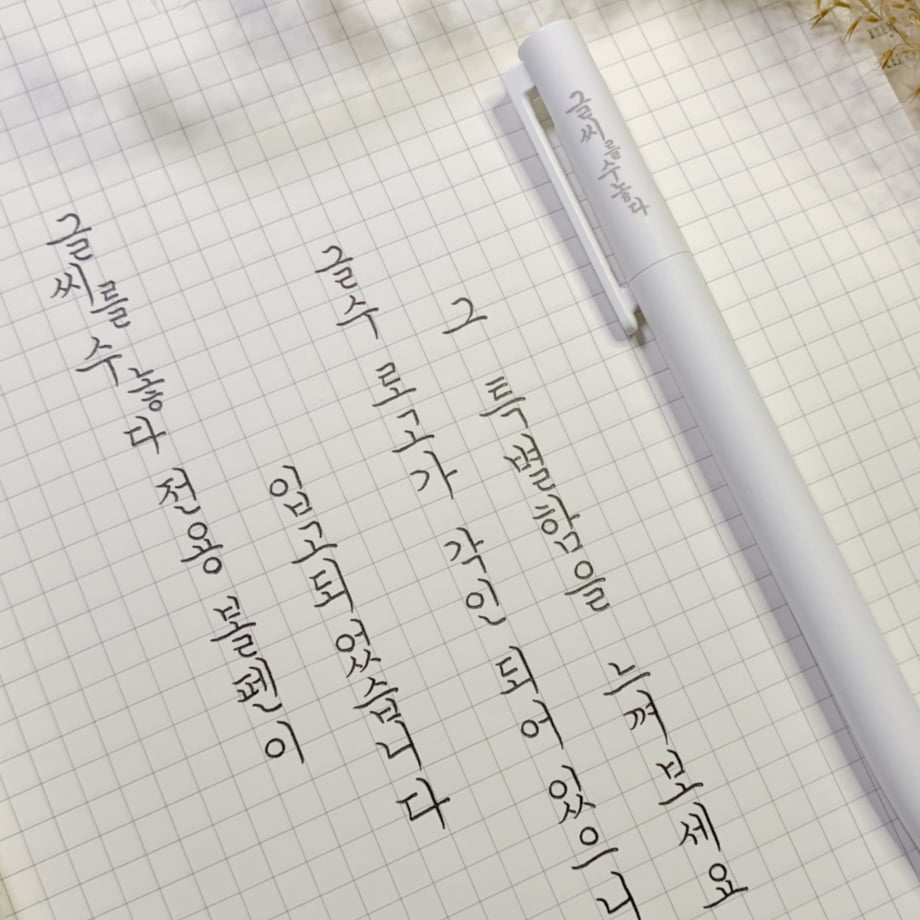 글씨를수놓다 전용 볼펜이
입고되었습니다
글수 로고가 각인 되어 있으니
그 특별함을 느껴보세요
글씨를수놓다